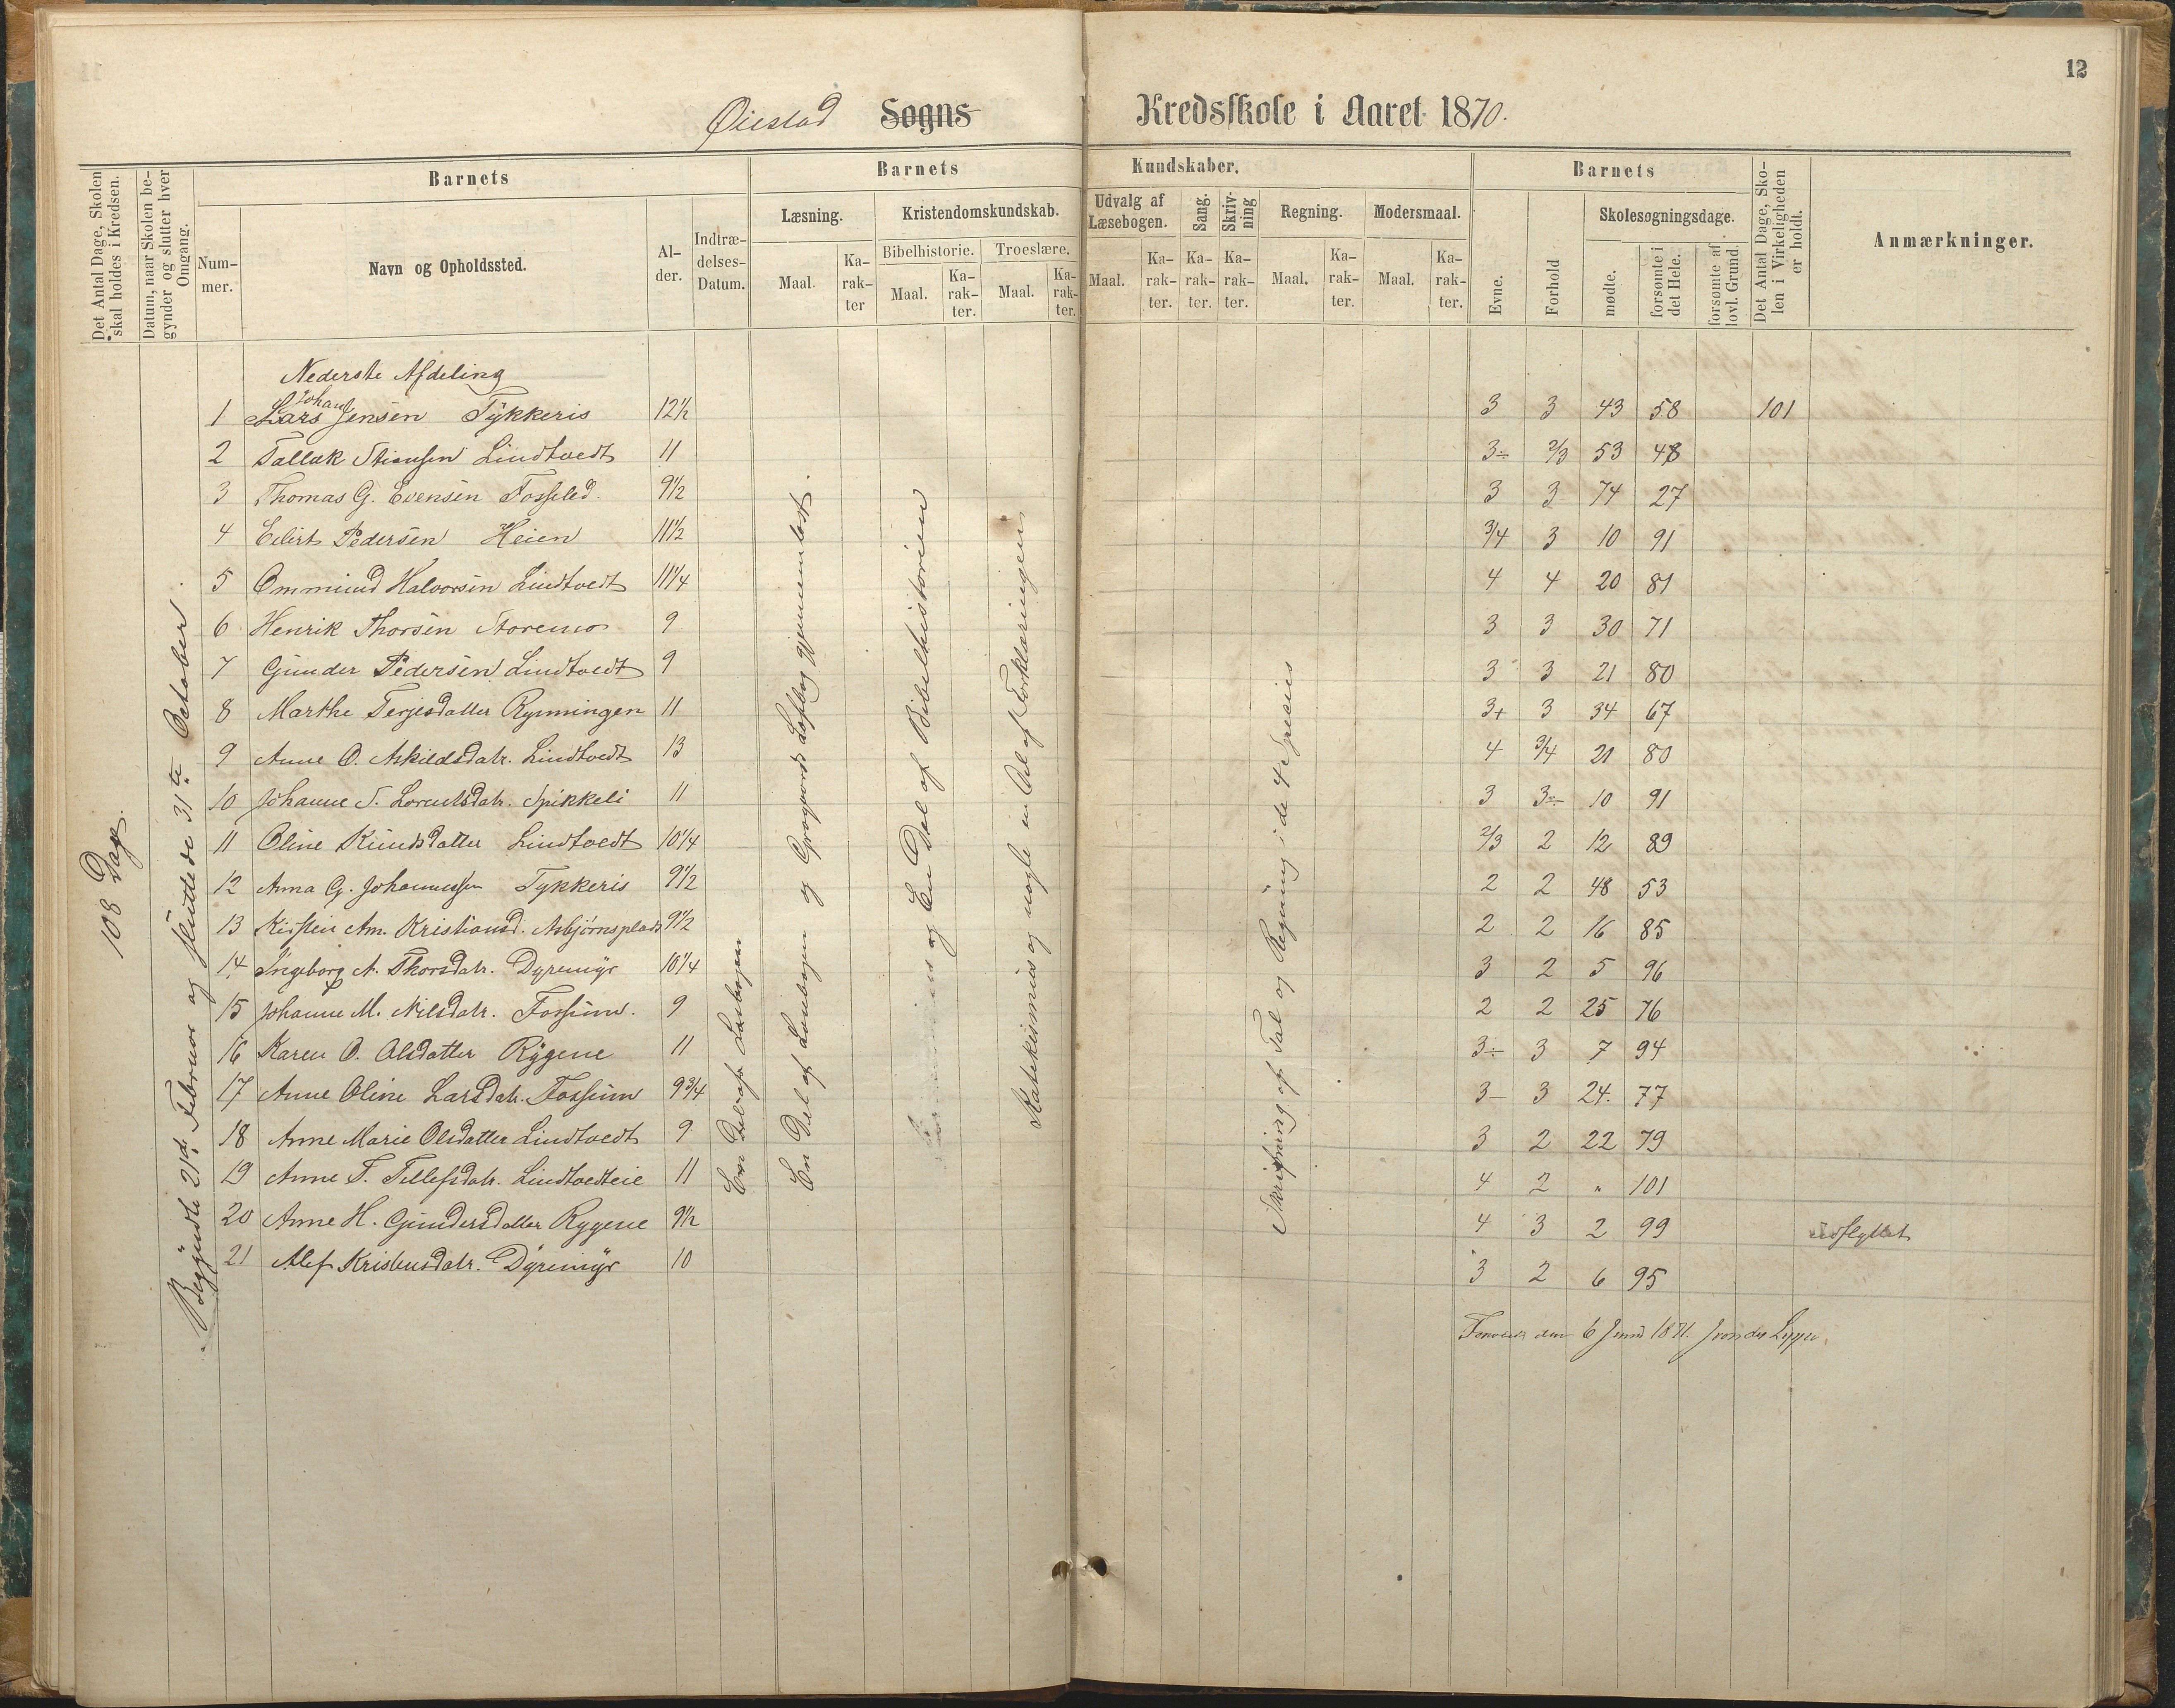 12
Øiestad Sogns Kredsskole i Aaret 1870.
Det Antal Dage, Skolen skal holdes i Kredsen.
Datum, naar Skolen begynder og slutter hver Omgang.
Barnets
Nummer.
Navn og Opholdssted.
Alder.
Indtrædelses-Datum.
Barnets Kundskaber.
Læsning.
Maal.
Karakter
Kristendomskundskab.
Bibelhistorie.
Maal.
Karakter.
Troeslære.
Maal.
Karakter.
Udvalg af Læsebogen.
Maal.
Karakter.
Sang.
Karakter.
Skrivning
Karakter.
Regning.
Maal.
Karakter.
Modersmaal.
Maal.
Karakter.
Barnets
Evne.
Forhold
Skolesøgningsdage.
mødte.
forsømte i det Hele.
forsømte af lovl. Grund.
Det Antal Dage, Skolen i Virkeligheden er holdt.
Anmærkninger.
108 Dage
Begyndte 21de Februar og sluttede 31te October.
Nederste Afdeling
1 Lars Johan Jensen Tykkeris 12½ 3 3 43 58 101
2 Tallak Stiansen Lindtvedt 11 3÷ 2/3 53 48
3 Thomas G. Evensen Fosselid. 9½ 3 3 74 27
4 Eilert Pedersen Heien 11½ 3/4 3 10 91
5 Ommund Halvorsen Lindtvedt 11¼ 4 4 20 81
6 Henrik Thorsen Storemo 9 3 3 30 71
7 Gunder Pedersen Lindtvedt 9 3 3 21 80
8 Marthe Terjesdatter Rynningen 11 3+ 3 34 67
9 Anne O. Askildsdatr. Lindtvedt 13 4 3/4 21 80
10 Johanne T. Lorentsdatr. Spikkeli 11 3 3÷ 10 91
11 Oline Knudsdatter Lindtvedt 10¼ 2/3 2 12 89
12 Anna G. Johannessen Tykkeris 9½ 2 2 48 53
13 Kirsten Am. Kristiansd. Asbjørnsplads 9½ 2 2 16 85
14 Ingeborg A. Thorsdatr. Dyremyr 10¼ 3 2 5 96
15 Johanne M. Nilsdatr. Fossum. 9 2 2 25 76
16 Karen O. Olsdatter Rygene 11 3÷ 3 7 94
17 Anne Oline Larsdatr. Fossum 9¾ 3- 3 24. 77
18 Anne Marie Olsdatter Lindtvedt 9 3 2 22 79
19 Anne T. Tellefsdatr. Lindtvedteie 11 4 2 " 101
20 Anne H. Gundersdatter Rygene 9½ 4 3 2 99 udflyttet
21 Alef Kristensdatr. Dyremyr 10 3 2 6 95
En Del af Læsebogen
En Del af Læsebogen og Grogaards Læsebog gjennemlæst.
En Del af Bibelhistorien
Katekismus og nogle en Del af Forklaringen
Skrivning af Tal og Regning i de 4 Species
den 6 Juni 1871. J von der Lippe